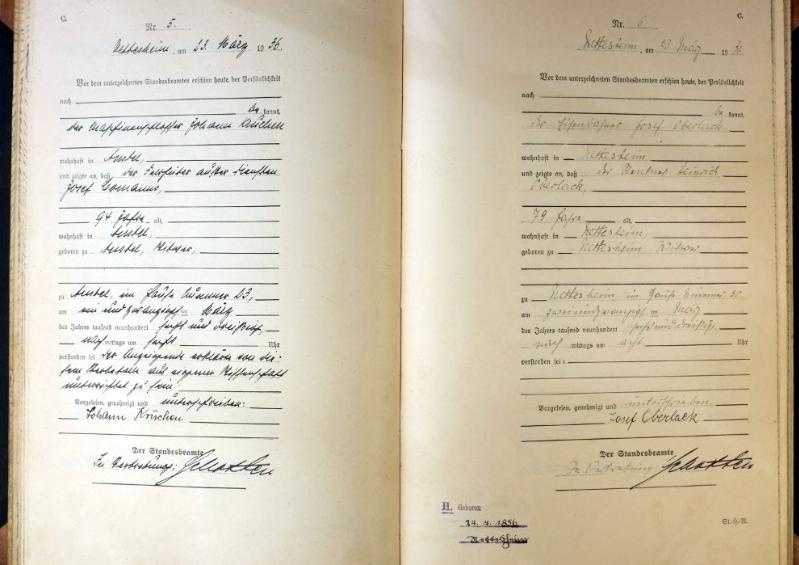 C.
Nr. 5.
Nettesheim, am 23. März 1936.
Vor dem unterzeichneten Standesbeamten erschien heute, der Persönlichkeit
nach
be kannt,
der Maschinenschlosser Johann
wohnhaft in Anstel,
und zeigte an, daß der außer Diensten
Josef
94 Jahre alt,
wohnhaft in Anstel,
geboren zu Anstel, Witwer,
zu Anstel, im Hause Nummer 23,
am ein und zwanzigsten März
des Jahres tausend neunhundert sechs und dreißig
mittags um Uhr
verstorben sei. Der Anzeigende erklärte von die-
sem Sterbefalle aus eigener Wissenschaft
unterrichtet zu sein.
Vorgelesen, genehmigt und unterschrieben:
Johann
Der Standesbeamte
In Vertretung:
C.
Nr. 6
Nettesheim, am 23. März 1936
Vor dem unterzeichneten Standesbeamten erschien heute, der Persönlichkeit
nach
be kannt,
der Eisenbahner Josef Oberlack,
wohnhaft in Nettesheim
und zeigte an, daß der Rentner Heinrich
Oberlack,
79 Jahre alt,
wohnhaft in Nettesheim,
geboren zu Nettesheim Witwer
zu Nettesheim im Hause Nummer
am zweiundzwanzigsten März
des Jahres tausend neunhundert sechsunddreißig
nach mittags um acht Uhr
verstorben sei.
Vorgelesen, genehmigt und unterschrieben
Josef Oberlack
Der Standesbeamte
In Vertretung
H. Geboren
1856
Nettesheim